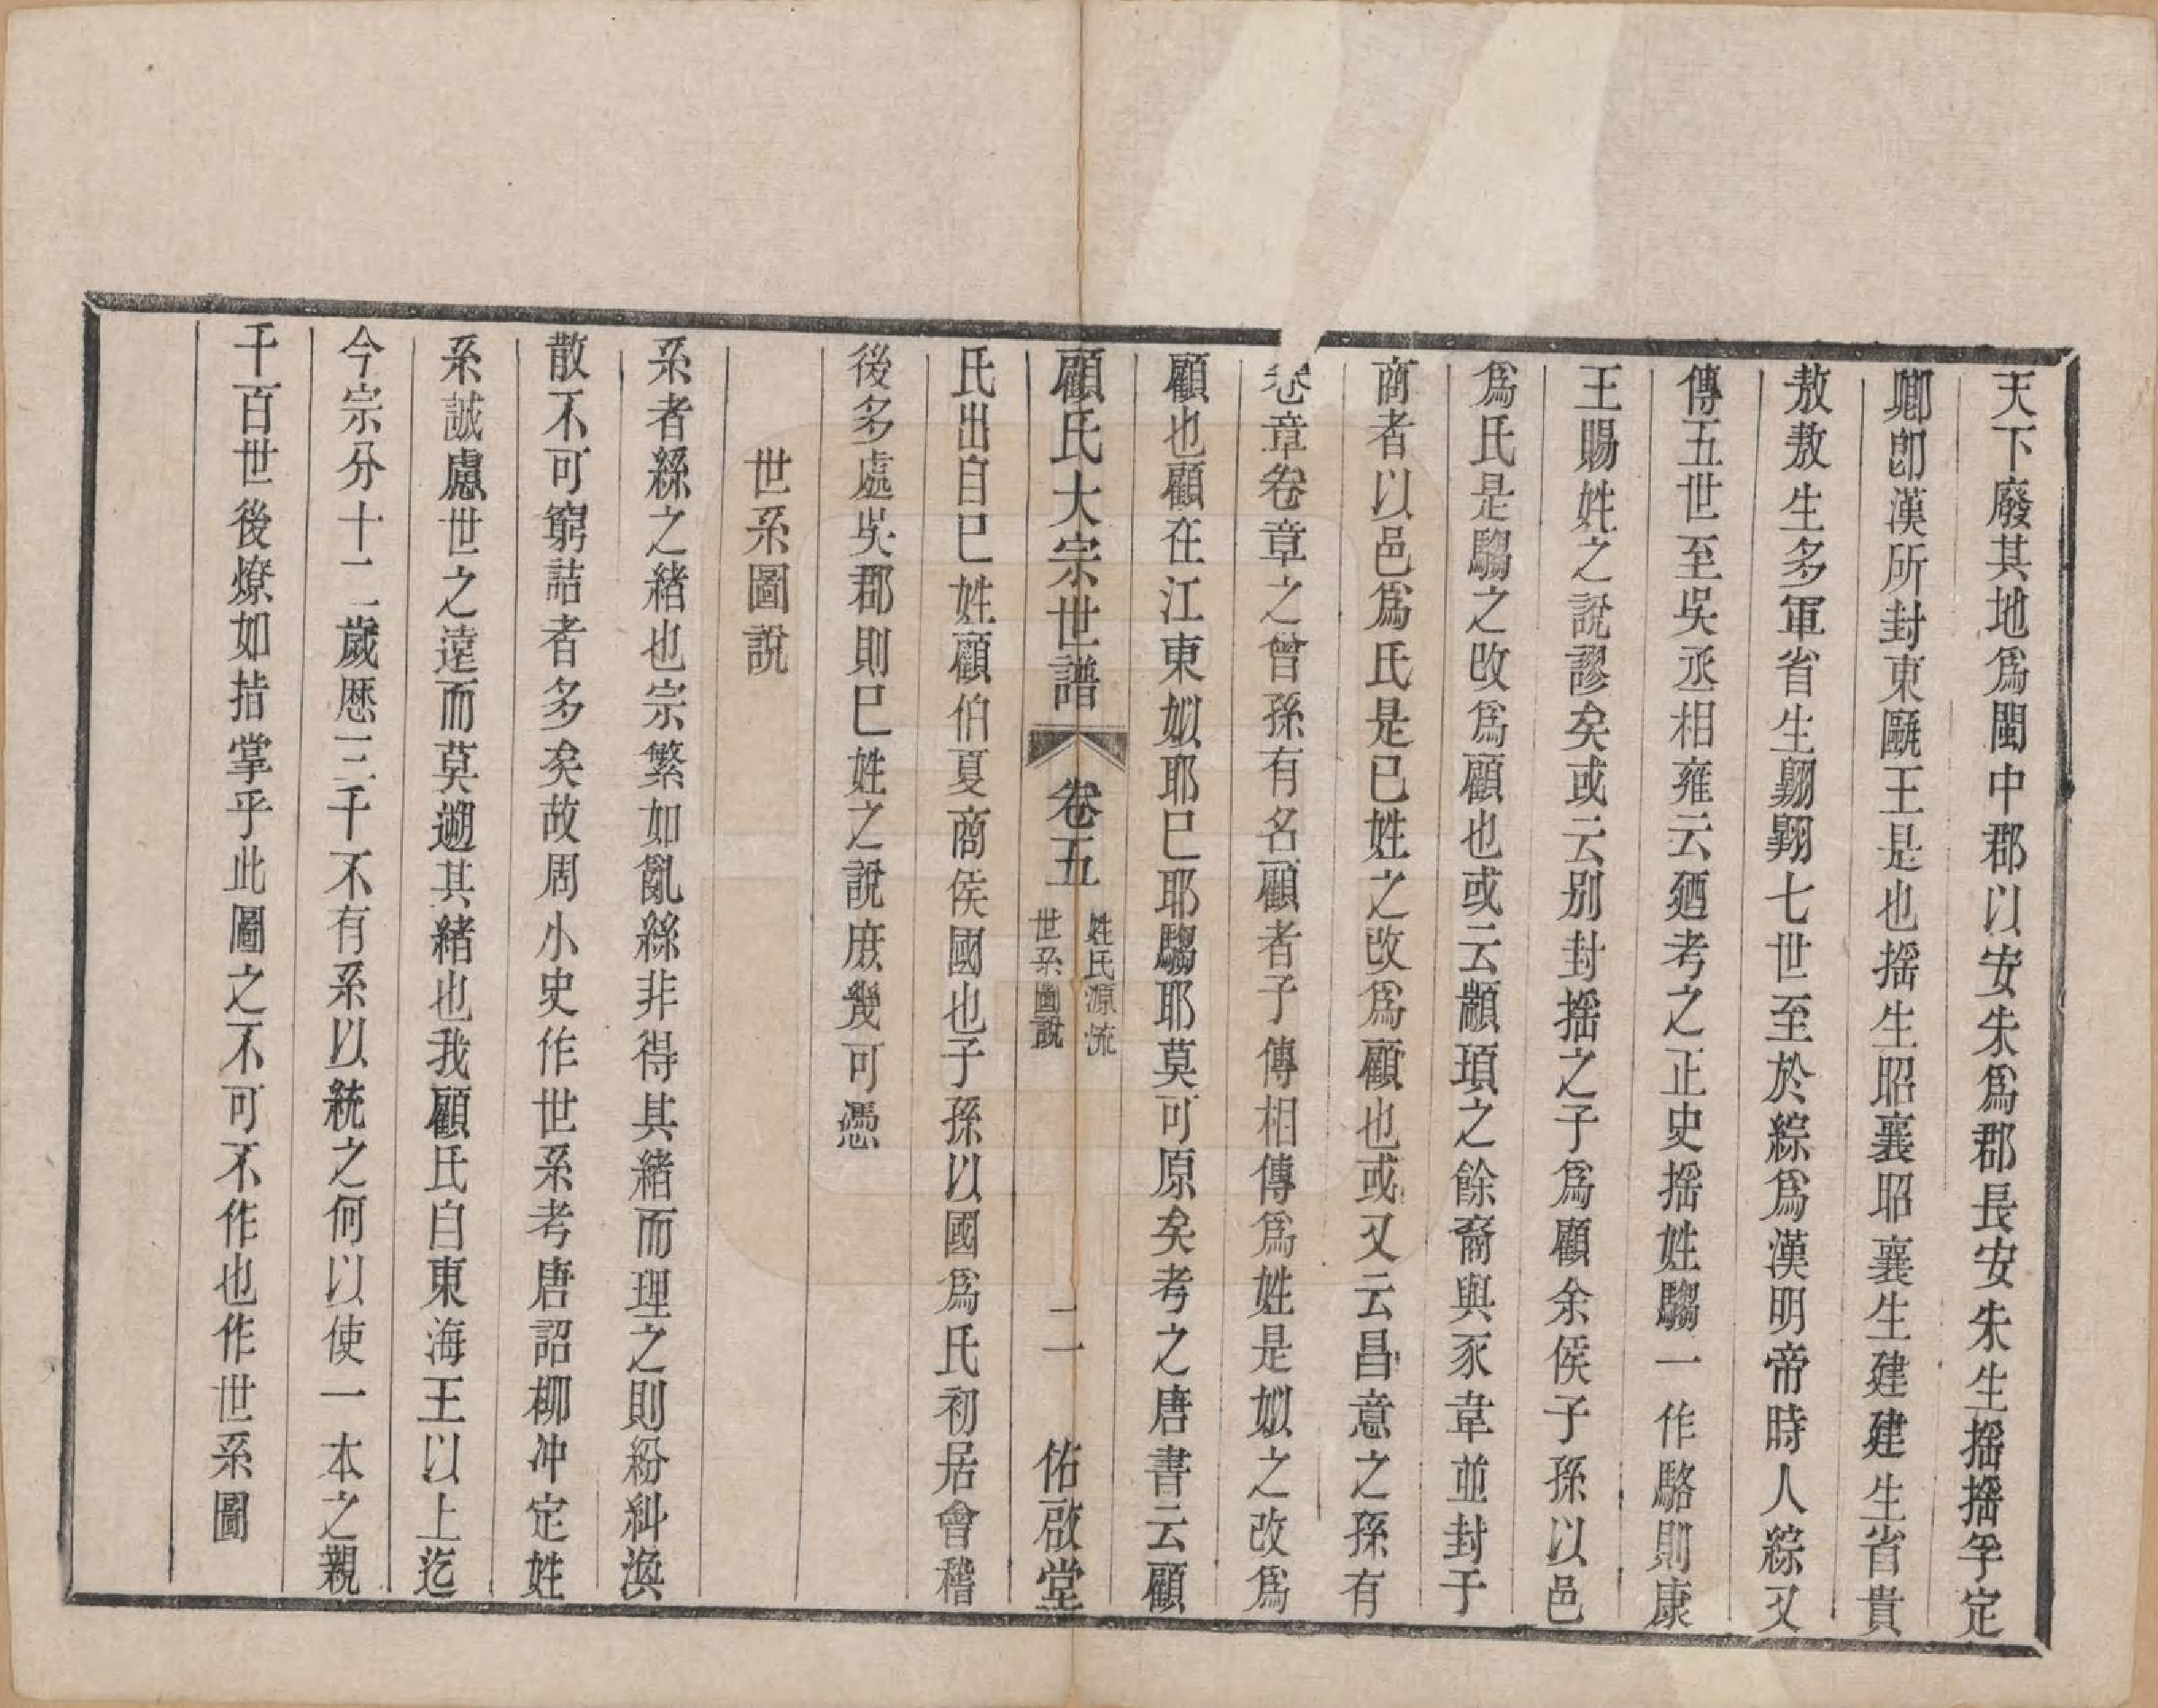 天下廢其地爲閩中郡以安朱爲郡長安朱生搖搖孚定
卿卽漢所封東甌王是也搖生昭襄昭襄生建建生省貴
敖敖生多軍省生翺翺七世至於綜爲漢明帝時人綜又
傳五世至吳丞相雍云廼考之正史搖姓騶一作駱則康
王賜姓之說謬矣或云别封搖之子爲顧余侯子孫以邑
爲氏是騶之改爲顧也或云顓頊之餘裔與豕韋並封于
商者以邑爲氏是已姓之改爲顧也或又云昌意之孫有
卷章卷章之曾孫有名顧者子傳相傳爲姓是姒之改爲
顧也顧在江東姒耶巳耶騶耶莫可原矣考之唐書云顧
顧氏大宗世譜 卷五 姓氏源流 世系圖說 二 佑啟堂
氏出自巳姓顧伯夏商侯國也子孫以國爲氏初居會稽
後多處吳郡則巳姓之說庶幾可憑
世系圖說
系者絲之緒也宗繁如亂絲非得其緒而理之則紛糾渙
散不可窮詰者多矣故周小史作世系考唐詔柳冲定姓
系誠慮世之遠而莫遡其緒也我顧氏自東海王以上迄
今宗分十二歲歷三千不有系以統之何以使一本之親
千百世後燎如指掌乎此圖之不可不作也作世系圖